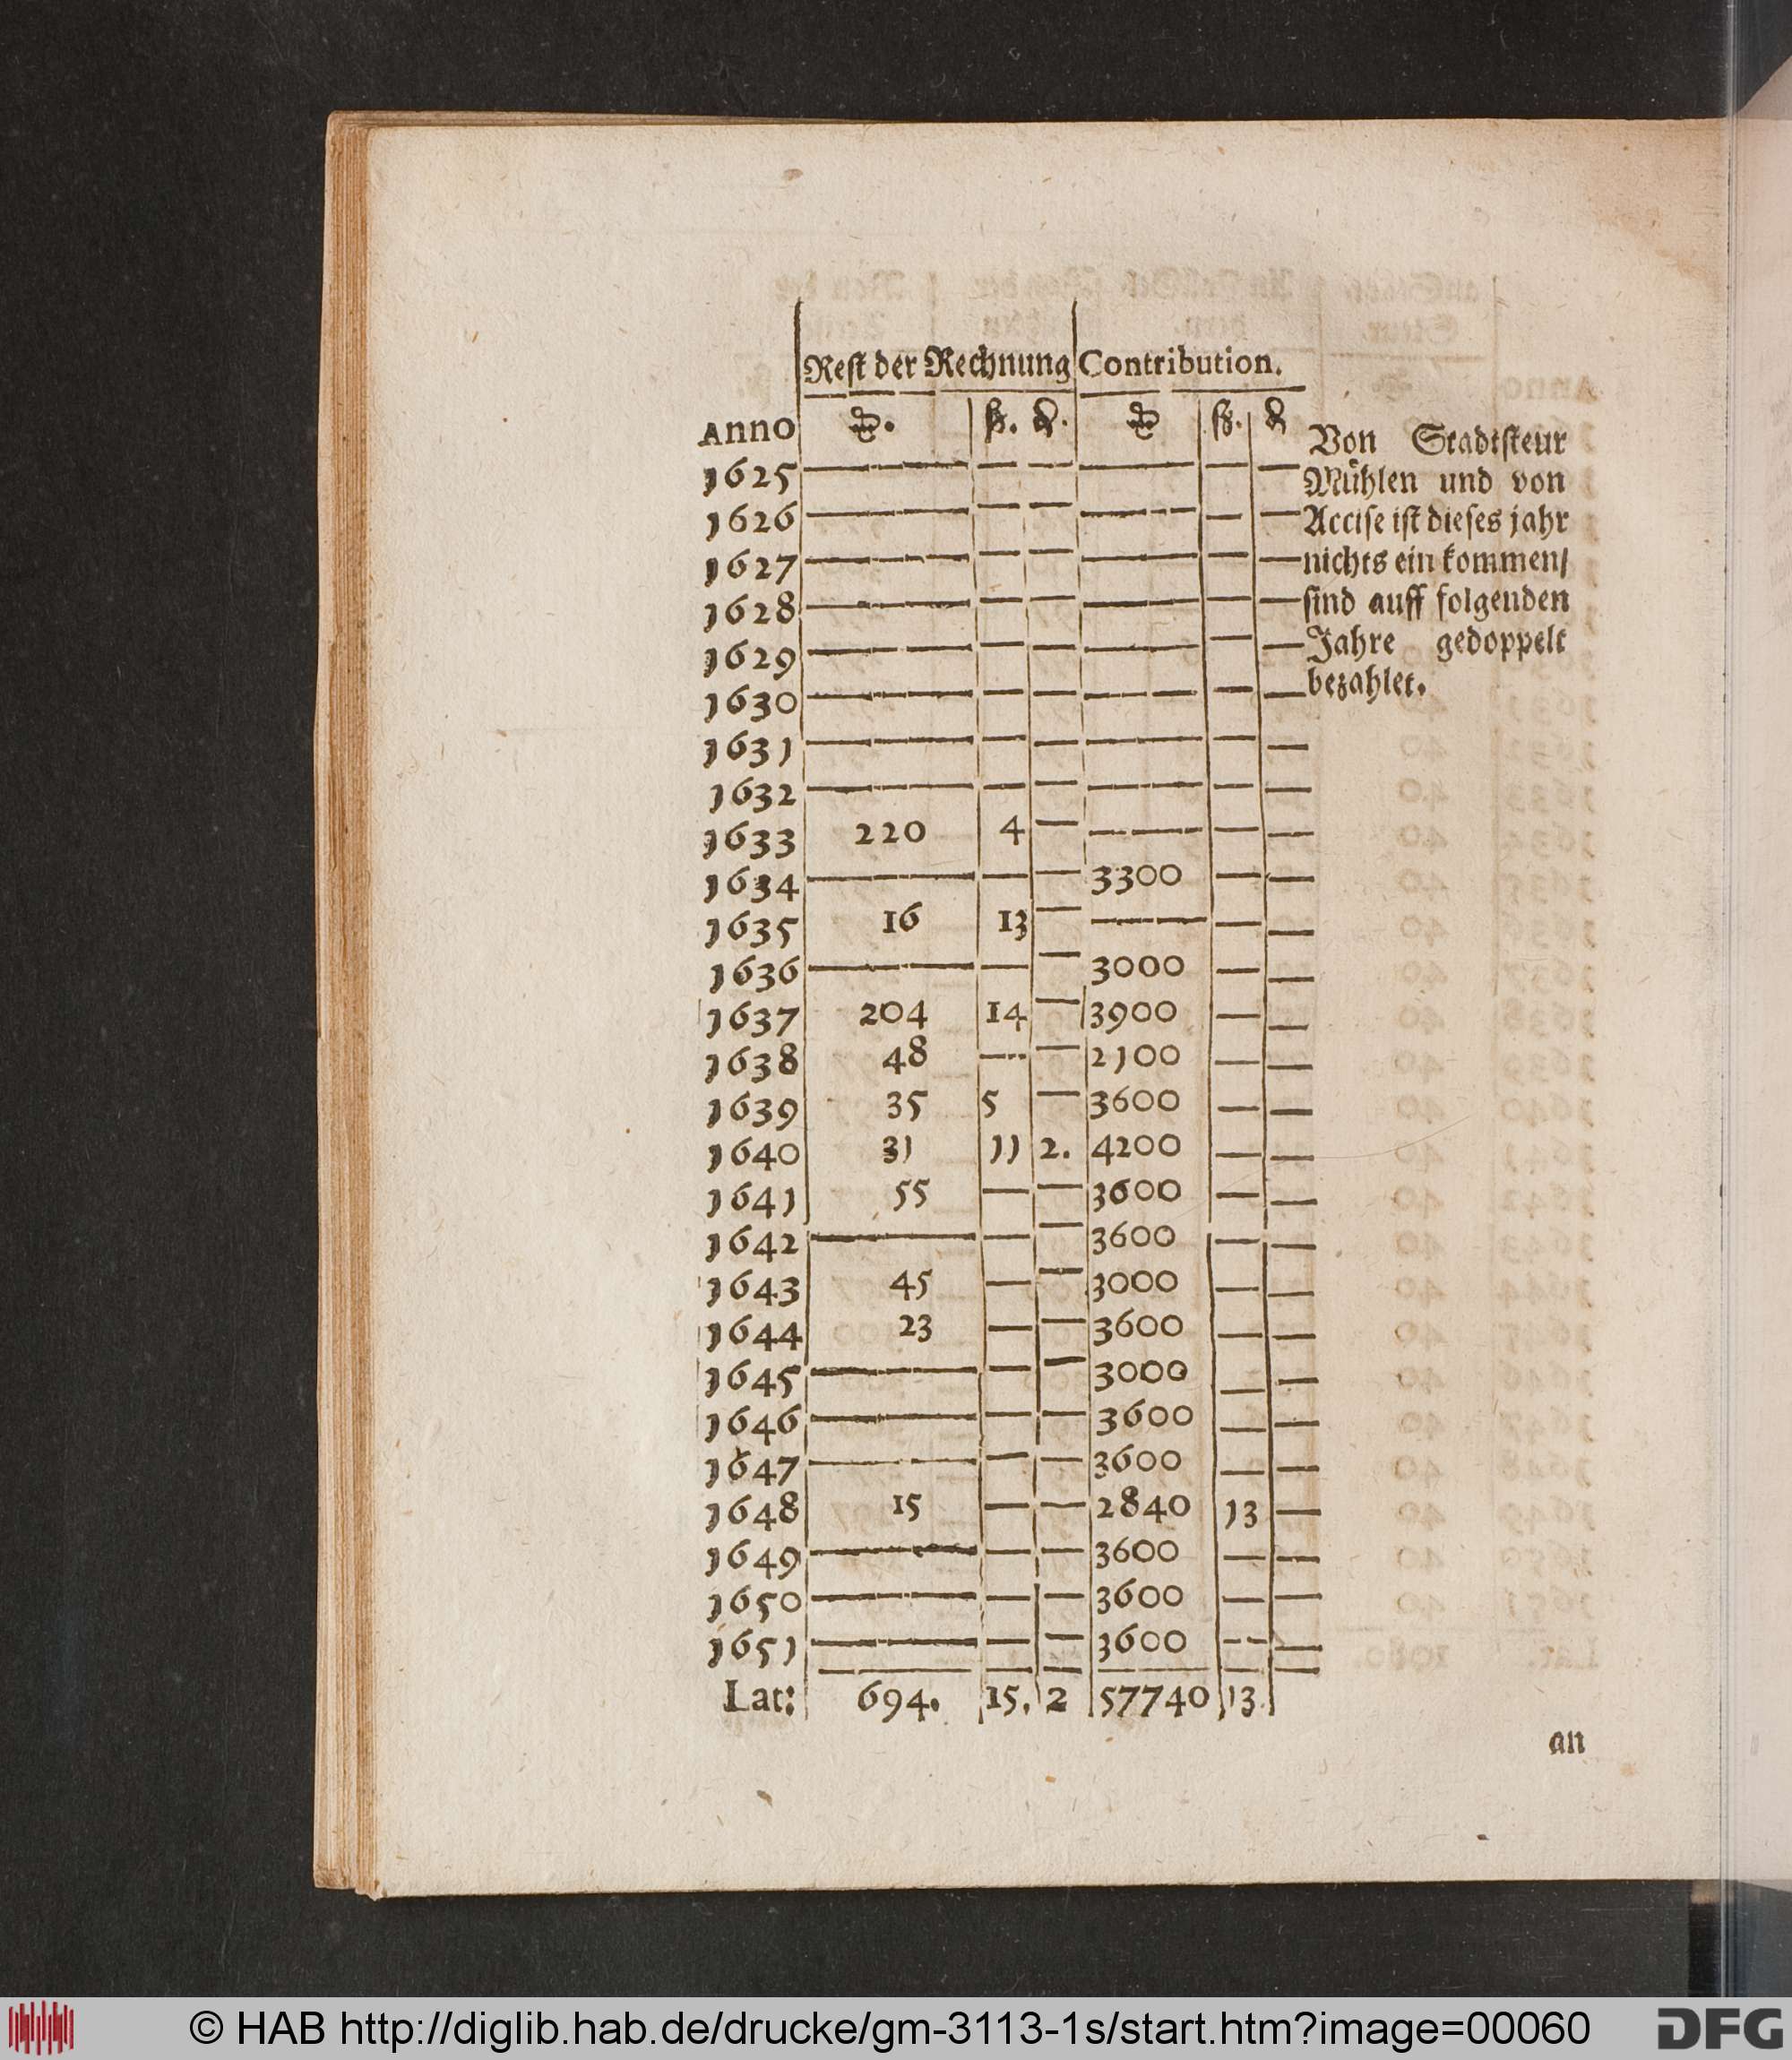 Rest der Rechnung Contribution.
Anno
1625 — — — — — —
1626 — — — — — —
1627 — — — — — —
1628 — — — — — —
1629 — — — — — —
1630 — — — — — —
1631 — — — — — —
1632 — — — — — —
1633 220 4 — — — —
1634 — — — 3300 — —
1635 16 13 — — — —
1636 — — — 3000 — —
1637 204 14 — 3900 — —
1638 48 — — 2100 — —
1639 35 5 — 3600 — —
1640 31 11 2. 4200 — —
1641 55 — — 3600 — —
1642 — — — 3600 — —
1643 45 — — 3000 — —
1644 23 — — 3600 — —
1645 — — — 3000 — —
1646 — — — 3600 — —
1647 — — — 3600 — —
1648 15 — — 2840 13 —
1649 — — — 3600 — —
1650 — — — 3600 — —
1651 — — — 3600 — —
Lat: 694. 15. 2 57740 13
Von Stadtsteur
Mühlen und von
Accise ist dieses jahr
nichts ein kommen/
sind auff folgenden
Jahre gedoppelt
bezahlet.
an
© HAB http://diglib.hab.de/drucke/gm-3113-1s/start.htm?image=00060
DFG